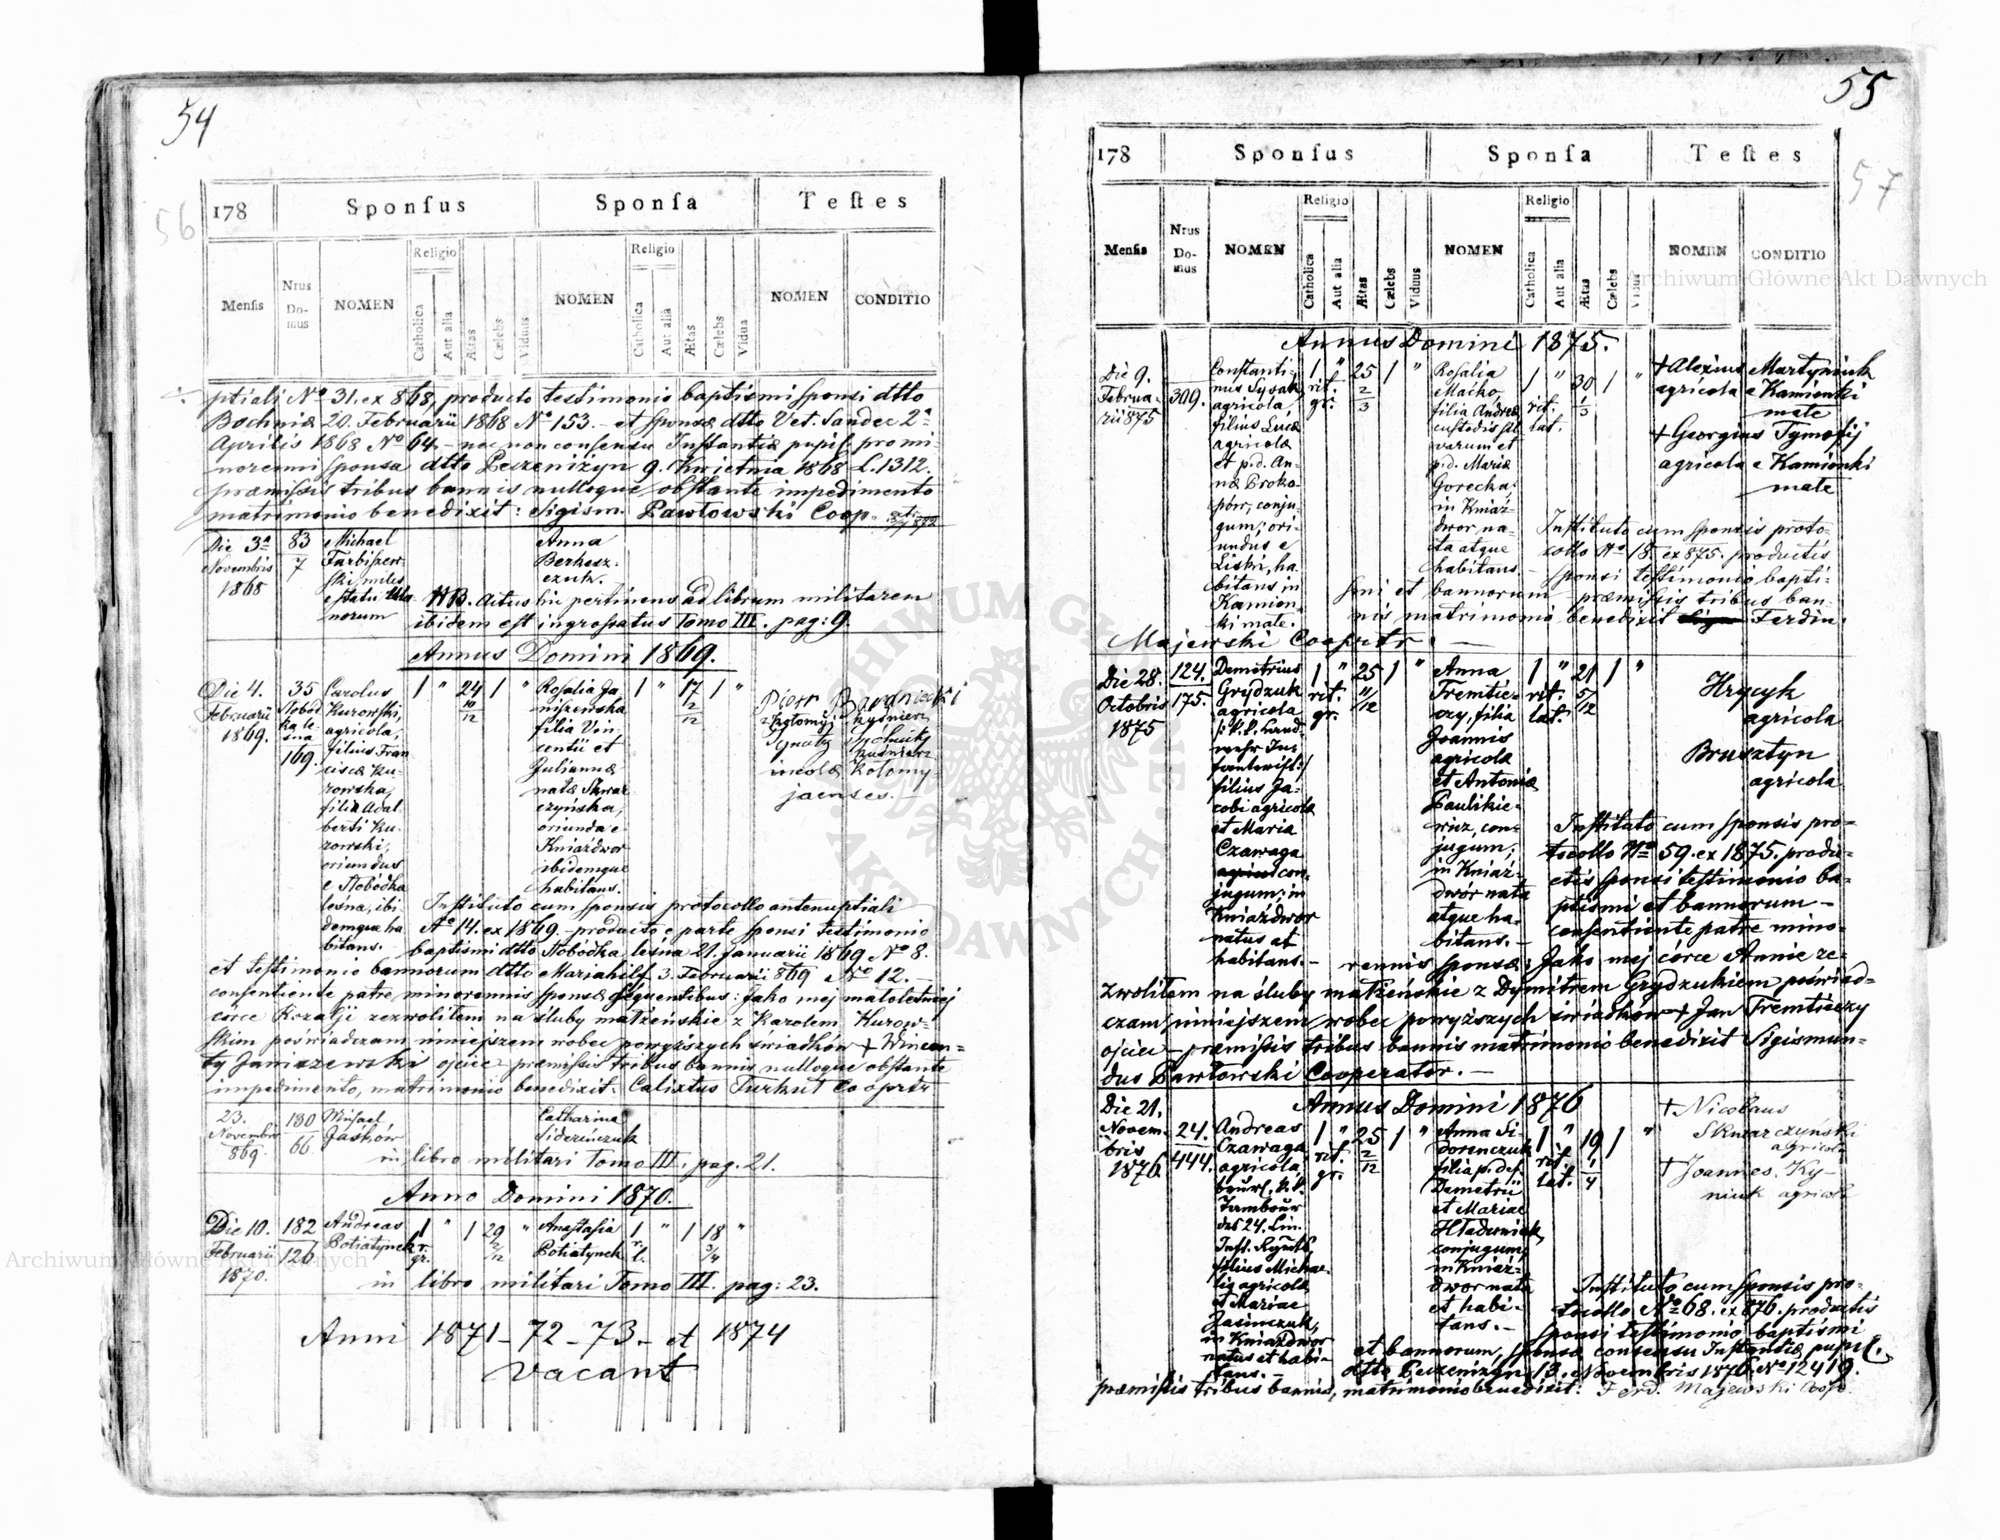 54
56
178 Sponsus Sponsa Testes
Mensis Nrus Domus NOMEN Religio Catholica Aut alia Ætas Cælebs Viduus NOMEN Religio Catholica Aut alia Ætas Cælebs Vidua NOMEN CONDITIO
ptiali No 31. ex 868, producto testimonio baptismi sponsi dtto
Bochniæ 20. Februarii 1868 No 153. – et sponsæ dtto Vet. Sandec 2a
Aprilis 1868 No 64. – nec non consensu Instantiæ pupil. pro mi-
norenni sponsa dtto Peczeniżyn 9. Kwietnia 1868 L. 1312.
præmissis tribus bannis nulloque obstante impedimento
matrimonio benedixit: Sigism. Pawłowski Coop.
Die 3a
Novembris
1868
83
7
Michael
miles
norum
Anna
NB. Actus hic pertinens ad librum militarem
ibidem est ingrossatus Tomo III. pag: 9.
Annus Domini 1869.
Die 4.
Februarii
1869.
35
Słobód
ka le-
śna
169.
Carolus
Kurowski,
agricola,
filius Fran
ciscæ Ku-
rowska,
filia Adal
berti Ku-
rowski,
oriundus
e Słobódka
leśna, ibi
demque ha
bitans. –
1 " 24 10/12 1 "
Rosalia Ja
niszewska
filia Vin
centii et
Juliannæ
natæ Skwar
czyńska,
oriunda e
Kniaźdwor
ibidemque
habitans.
1 " 17 2/12 1 "
Piotr
Ignacy
incolæ Kołomy-
jaenses. –
Instituto cum sponsis protocollo antenuptiali
No 14. ex 1869. – producto e parte sponsi testimonio
baptismi dtto Słobodka leśna 21. Januarii 1869 No 8.
et testimonio bannorum dtto Mariahilf 3. Februarii 869 No 12. –
consentiente patre minorennis sponsæ sequentibus: Jako mej małoletniej
córce Rozalji zezwoliłem na śluby małżeńskie z Karolem Kurow-
skim poświadczam niniejszem wobec powyższych świadków + Wincen-
ty Janiszewski ojciec – præmissis tribus bannis nulloque obstante
impedimento, matrimonio benedixit: Calixtus Turkuł Cooprtr
23.
Novembr
869.
180
66.
Misael
Jasków
Catharina
Siderińczuk
in libro militari Tomo III. pag. 21.
Anno Domini 1870.
Die 10.
Februarii
1870.
182
126
Andreas
Botiatynek
1 r. gr. " 1 29 2/12 "
Anastasia
Botiatynek
1 r. l. " 1 18 3/4 "
in libro militari Tomo III. pag: 23.
Anni 1871 – 72 – 73 – et 1874
vacant
55
57
178 Sponsus Sponsa Testes
Mensis Nrus Domus NOMEN Religio Catholica Aut alia Ætas Cælebs Viduus NOMEN Religio Catholica Aut alia Ætas Cælebs Vidua NOMEN CONDITIO
Annus Domini 1875.
Die 9.
Februa-
rii 875
309.
Constanti-
nus Sysak
agricola
filius Lucæ
agricolæ
et p.d. An-
næ Proko-
pów, conju-
gum; ori-
undus e
Liski, ha
bitans in
Kamion-
ki małe.
1 rit. gr. " 25 2/3 1 "
Rosalia
Maćko,
filia Andreæ
custodis sil
varum et
p.d. Mariæ
Gorecka
in Kniaź-
dwor na-
ta atque
habitans. –
1 rit. lat. " 30 1/3 1 "
+ Alexius Martyniuk
agricola e Kamionki
małe
+ Georgius Tymofij
agricola e Kamionki
małe
Instituto cum sponsis proto-
collo No 18. ex 875. productis
sponsi testimonio bapti-
smi et bannorum præmissis tribus ban-
nis matrimonio benedixit Ferdin.
Majewski Cooprtr. –
Die 28.
Octobris
1875
124.
175.
Demetrius
Grydzuk
agricola
/: k. k. Land
wehr In-
fanterist :/
filius Ja-
cobi agricolæ
et Maria
Czawaga
con-
jugum; in
Kniaźdwor
natus at
habitans. –
1 rit. gr. " 25 11/12 1 "
Anna
Tremtie-
czy, filia
Joannis
agricolæ
et Antoniæ
Paulikie-
wicz, con-
jugum;
in Kniaź-
dwór nata
atque ha-
bitans. –
1 rit. lat. " 21 5/12 1 "
Hrycyk
agricola
Brusztyn
agricola
Instituto cum sponsis pro-
tocollo No 59. ex 1875. produ-
ctis sponsi testimonio ba-
ptismi et bannorum –
consentiente patre mino-
rennis sponsæ: Jako mej córce Annie ze-
zwoliłem na śluby małżeńskie z Dymitrem Grydzukiem poświad-
czam niniejszem wobec powyższych świadków + Jan Tremtieczy
ojciec – præmissis tribus bannis matrimonio benedixit Sigismun-
dus Pawłowski Cooperator. –
Annus Domini 1876
Die 21.
Novem-
bris
1876.
24.
444.
Andreas
Czawaga
agricola
beurl. k. k.
Tambour
des 24. Lin.
Inft. Rgmts.
filius Michae-
lis agricolæ
et Mariæ
Jasinczuk,
in Kniaźdwor
natus et habi-
tans. –
1 rit. gr. " 25 2/12 1 "
Anna Si-
dorenczuk
filia p. def.
Demetrii
et Mariæ
Hladuniak,
conjugum;
in Kniaź-
dwor nata
et habi-
tans. –
1 rit. lat. " 19 1/4 1 "
+ Nicolaus
Skwarczynski
agricola
+ Joannes Ky-
niuk agricola
Instituto cum sponsis pro-
tocollo No 68. ex 876. productis
sponsi testimonio baptismi
et bannorum, sponsæ consensu Instantiæ pupil.
dtto Peczeniżyn 13. Novembris 1876 No 12419.
præmissis tribus bannis, matrimonio benedixit: Ferd. Majewski Coop.
Archiwum Główne Akt Dawnych
Archiwum Główne Akt Dawnych
ARCHIWUM GŁÓWNE AKT DAWNYCH